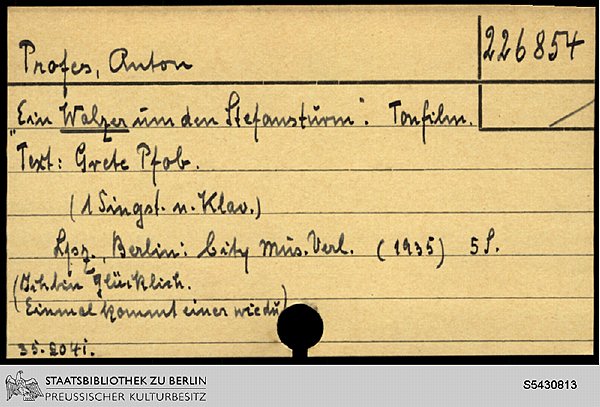 226854
Profes, Anton
"Ein Walzer um den Stefansturm". Tonfilm.
Text: Grete Pfob.
(1 Singst. u. Klav.)
Lpz., Berlin: City Mus. Verl. (1935) 5 S.
(Ich bin glücklich.
Einmal kommt einer wie du)
35.2041.
STAATSBIBLIOTHEK ZU BERLIN
PREUSSISCHER KULTURBESITZ
S5430813